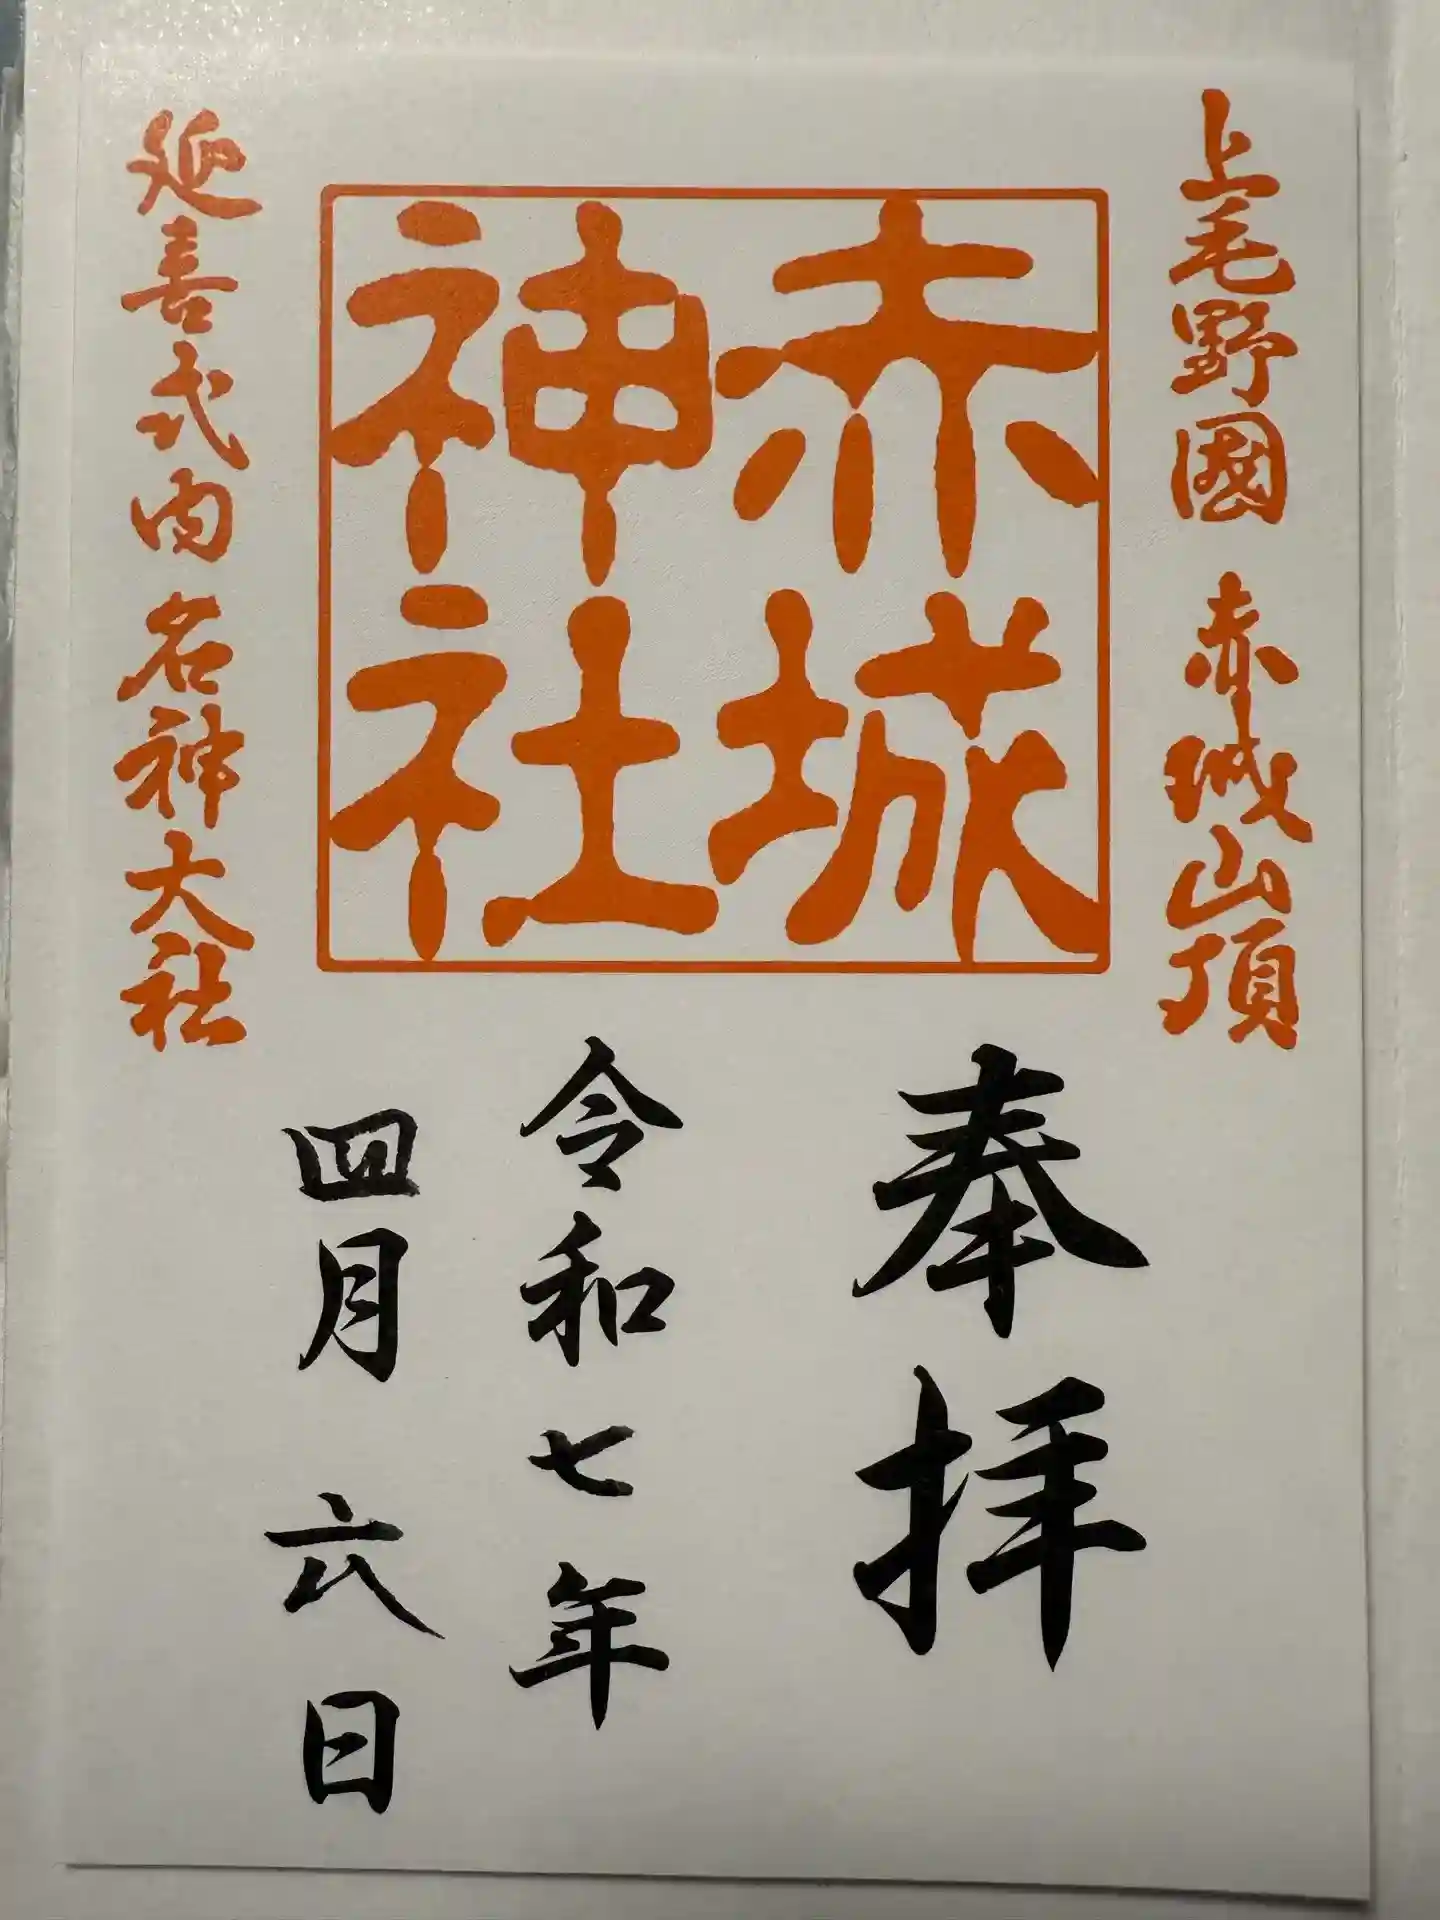 上毛野國 赤城山頂
赤城
神社
延喜式内 名神大社
奉拝
令和七年
四月六日